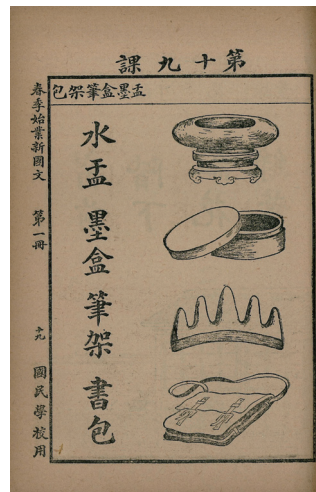 第十九課
盂墨盒筆架包
水盂 墨盒 筆架 書包
春季始業新國文 第一冊 十九 國民學校用